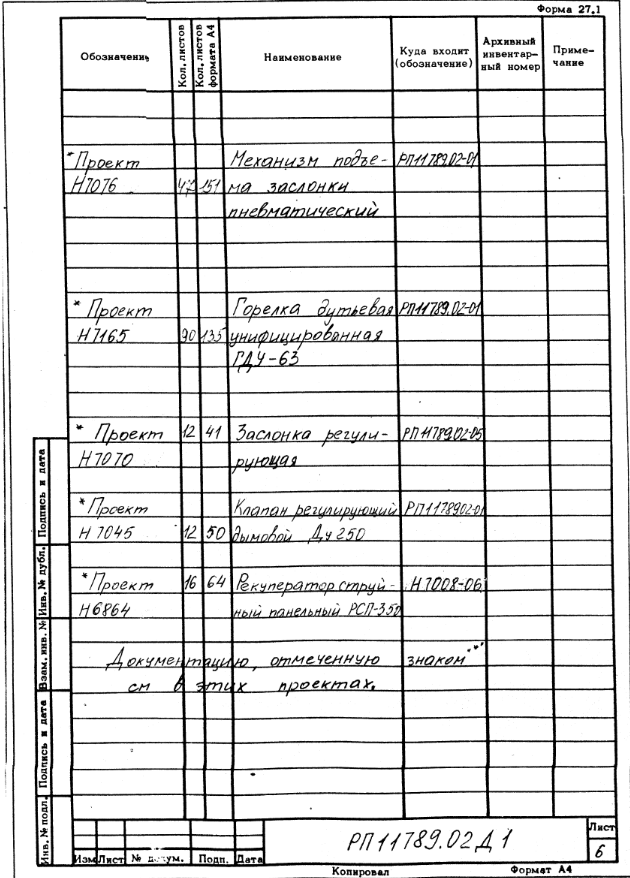 Форма 27.1
Обозначение Кол. листов Кол. листов формата А4 Наименование Куда входит (обозначение) Архивный инвентар- ный номер Приме- чание
*Проект Механизм подъе- РП11789.02-01
Н7076 47 151 ма заслонки
пневматический
* Проект Горелка дутьевая РП11789.02-01
Н7165 90 135 унифицированная
ГДУ-63
* Проект 12 41 Заслонка регули- РП11789.02-05
Н7070 рующая
*Проект Клапан регулирующий РП1178902-01
Н 7045 12 50 дымовой Ду 250
*Проект 16 64 Рекуператор струй- Н7008-06
Н6864 ный панельный РСП-350
Документацию, отмеченную знаком "*"
см в этих проектах.
Инв. № подл. Подпись и дата Взам. инв. № Инв. № дубл. Подпись и дата
РП11789.02Д1
Лист
6
Изм Лист № докум. Подп. Дата
Копировал Формат А4